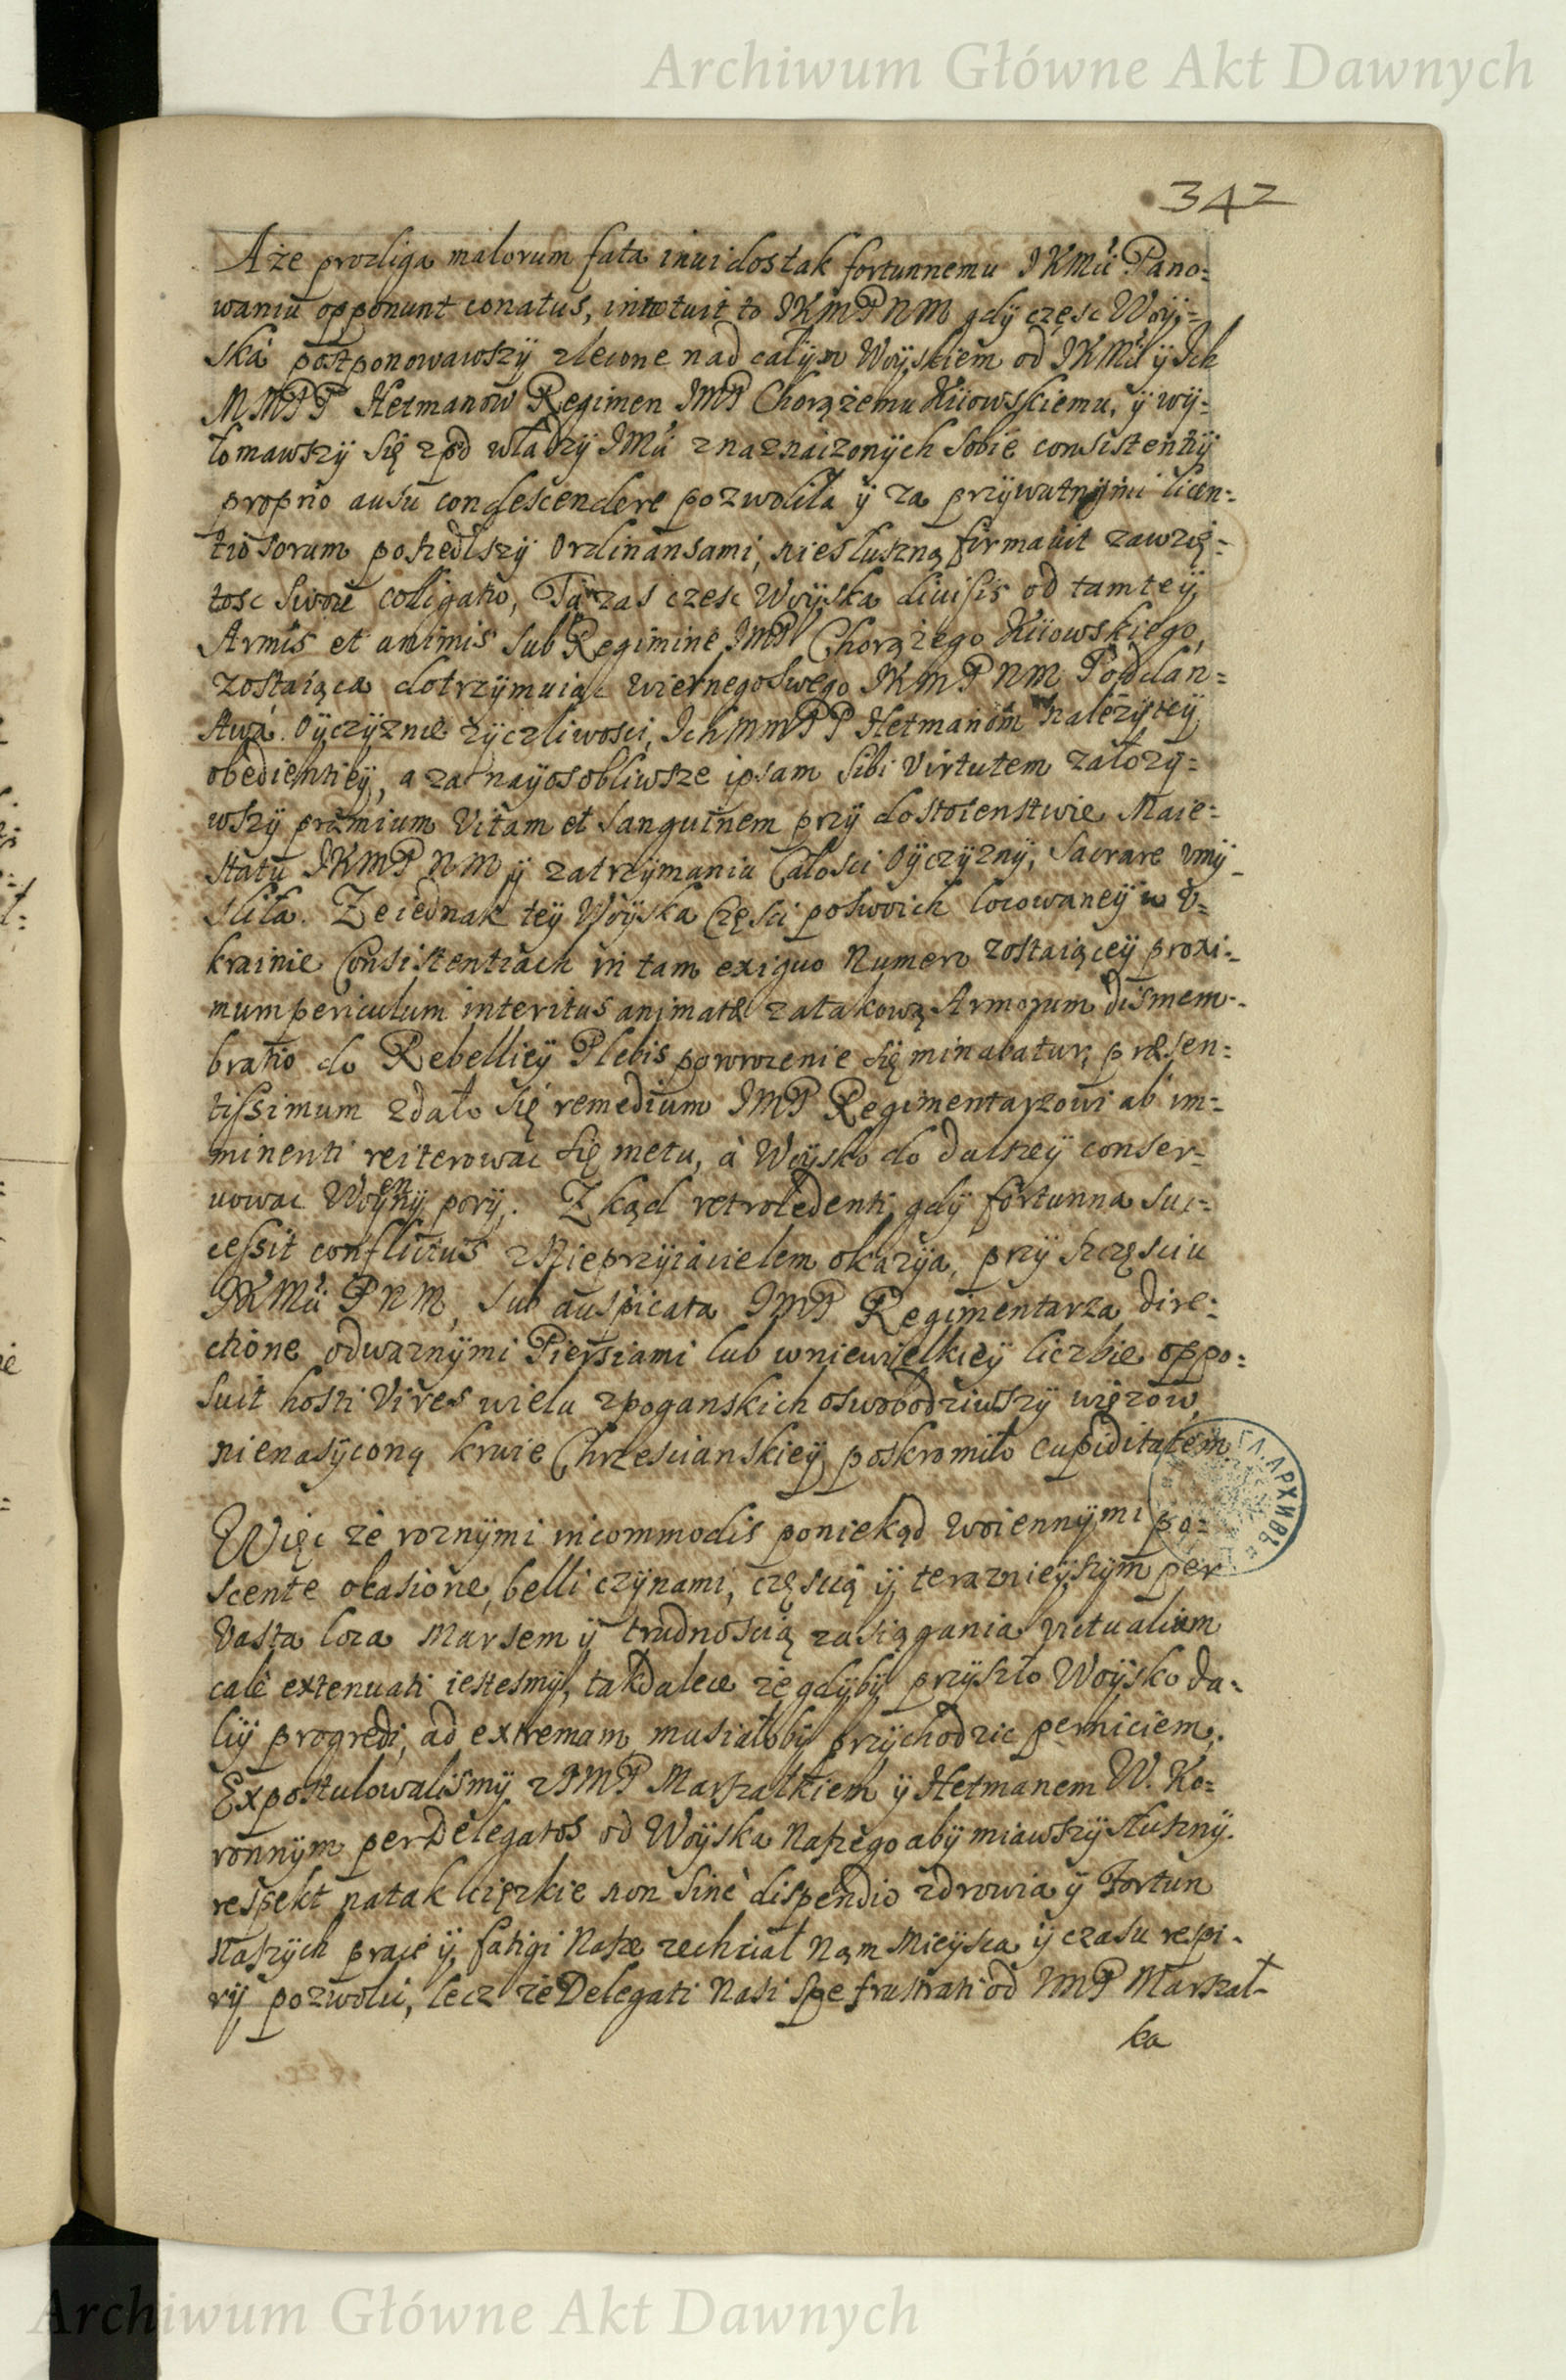 Archiwum Główne Akt Dawnych
342
A że prodiga malorum fata inuidos tak fortunnemu JKMći Pano=
waniu opponunt conatus, innotuit to JKMPNM gdÿ częsc Woÿ=
ska postponowawszÿ zlecone nad całÿm Woÿskiem od JKMći ÿ Ich
MMPP Hetmanow Regimen JMP Chorążemu Kiiowskiemu, ÿ wÿ=
łomawszÿ się zpod władzÿ JMći z naznaczonÿch sobie consistentÿ
proprio ausu condescendere pozwoliła ÿ za prÿwatnÿmi licen=
tiosorum poszedłszÿ Ordinansami, niesłuszną firmauit zawzię=
tosc swoie colligatio, Ta zas czesc Woÿska diuisis od tamteÿ
Armis et animis sub Regimine JMP Chorążego Kiiowskiego,
zostaiąca dotrzÿmuiąc wiernego swego JKMPNM Poddan=
stwa. Oÿczÿznie zÿczliwosci, Ich MMPP Hetmanom należÿteÿ
obedientieÿ, a za naÿosobliwsze ipsam sibi Virtutem załozÿ=
wszÿ præmium Vitam et sanguinem przÿ dostoienstwie Maie=
statu JKMPNM ÿ zatrzÿmaniu Całosci Oÿczÿznÿ, sacrare vmÿ=
sliła. Ze iednak teÿ Woÿska Częsci po swoich locowaneÿ w V=
krainie Consistentiach in tam exiguo Numero zostaiąceÿ proxi=
mum periculum interitus animatæ za takową Armorum dismem=
bratio do Rebellieÿ Plebis powrocenie się minabatur, præsen=
tissimum zdało się remedium JMP Regimentarzowi ab im=
minenti reiterowac się metu, à Woÿsko do dalszeÿ conser=
uowac Woÿennÿ porÿ. Zkąd retrocedenti gdÿ fortunna suc=
cessit conflictus z Nieprzÿiacielem okazÿa, przÿ szczęsciu
JKMći PNM, sub auspicata JMP Regimentarza dire=
ctione odwaznÿmi Piersiami lub w niewielkieÿ liczbie oppo=
suit hosti Vires wielu z poganskich oswobodziwszÿ więzow,
nienasÿconą krwie Chrzescianskieÿ poskromiło cupiditatem
Więc ze roznÿmi incommodis poniekąd woiennÿmi po=
scente ocasione belli czÿnami, częscią ÿ teraznieÿszÿm per
Vasta loca Marsem ÿ trudnoscią zasiągania victualium
cale extenuati iestesmÿ, takdalece ze gdÿbÿ przÿszło Woÿsko da=
liÿ progredi, ad extremam musiałobÿ przÿchodzic perniciem,
Expostulowalismÿ z JMP Marszałkiem ÿ Hetmanem W. Ko=
ronnÿm per Delegatos od Woÿska Naszego abÿ miawszÿ słusznÿ
respekt na tak cięzkie non sine dispendio zdrowia ÿ Fortun
naszÿch prace ÿ fatigi Nasze zechciał Nam mieÿsca ÿ czasu respi=
rÿ pozwolic, lecz ze Delegati Nasi spe frustrati od JMP Marszał=
ka
Archiwum Główne Akt Dawnych